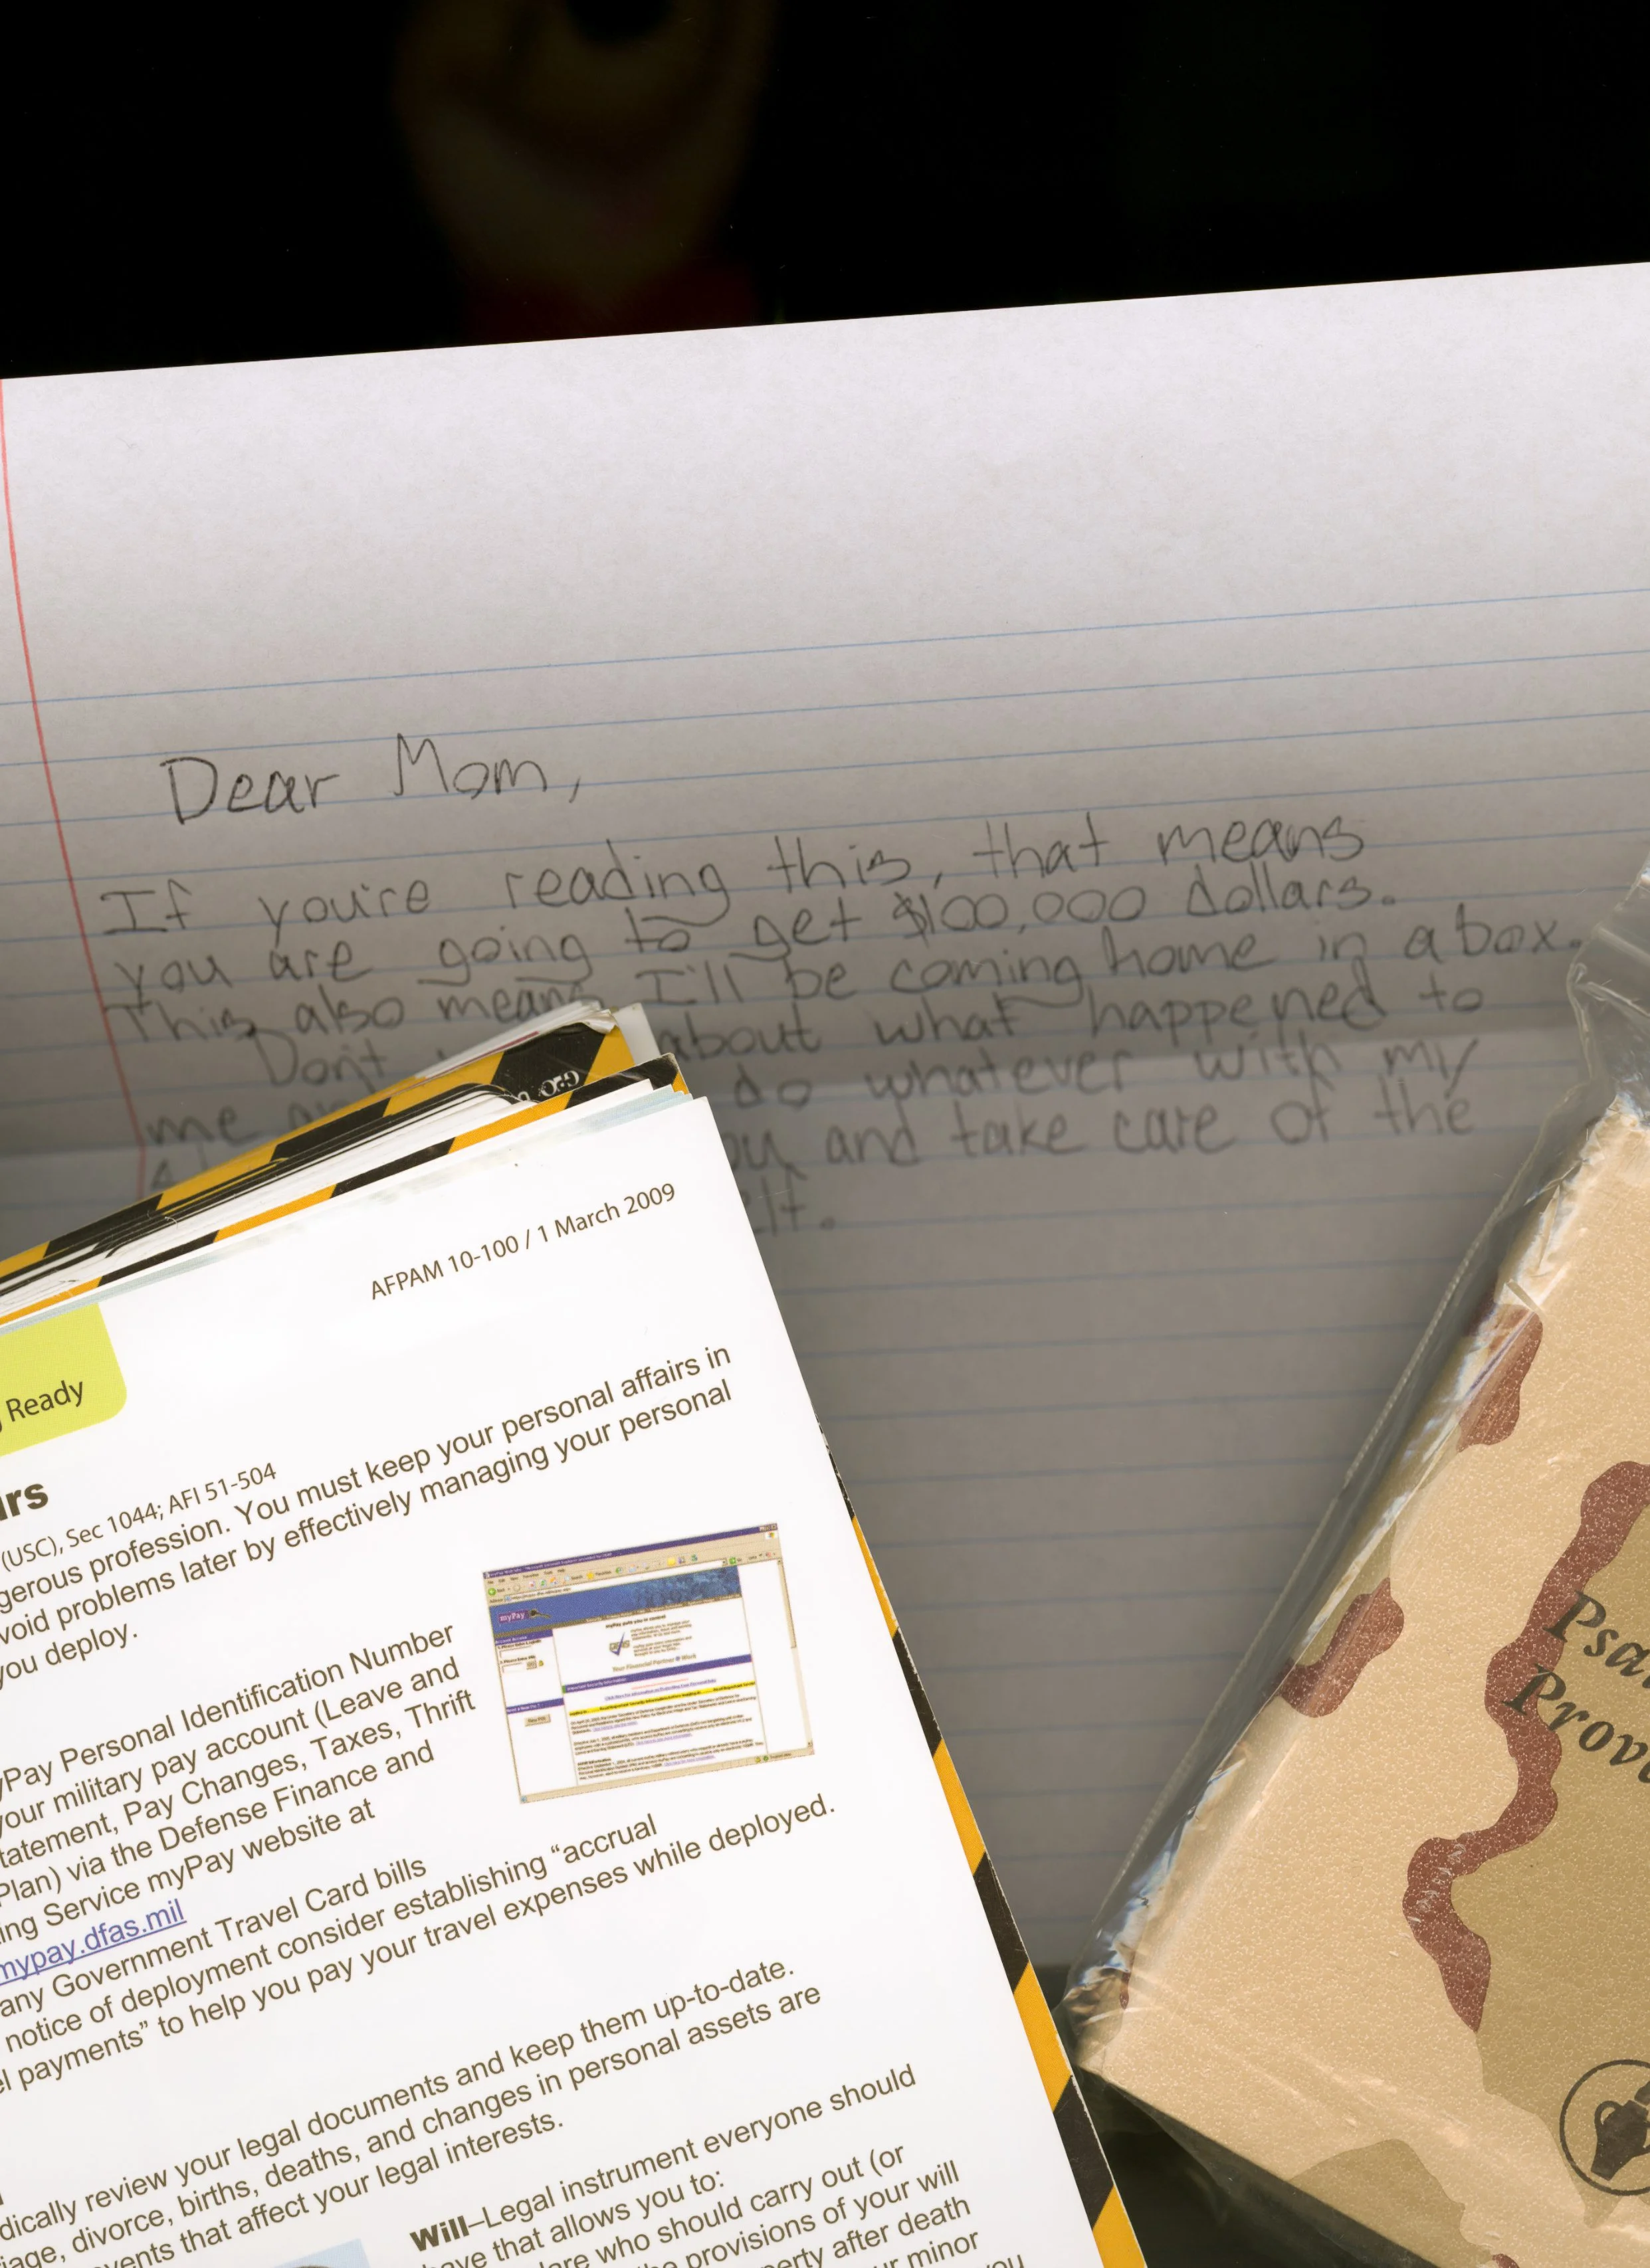 Dear Mom,
If you're reading this, that means
you are going to get $100,000 dollars.
This also means I'll be coming home in a box.
Don't about what happened to
me do whatever with my
and take care of the
AFPAM 10-100 / 1 March 2009
Ready
(USC), Sec 1044; AFI 51-504
gerous profession. You must keep your personal affairs in
void problems later by effectively managing your personal
you deploy.
yPay Personal Identification Number
your military pay account (Leave and
tatement, Pay Changes, Taxes, Thrift
Plan) via the Defense Finance and
ing Service myPay website at
mypay.dfas.mil
any Government Travel Card bills
notice of deployment consider establishing “accrual
el payments” to help you pay your travel expenses while deployed.
dically review your legal documents and keep them up-to-date.
iage, divorce, births, deaths, and changes in personal assets are
vents that affect your legal interests.
Will–Legal instrument everyone should
have that allows you to:
are who should carry out (or
provisions of your will
perty after death
ur minor
you
myPay
Psa
Prov